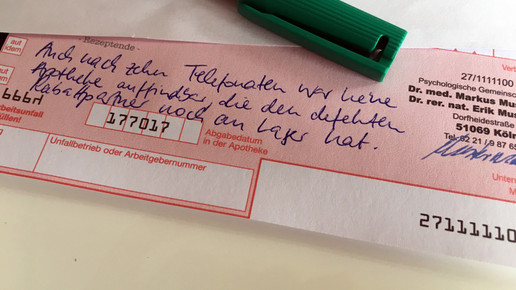 - Rezeptende -
aut
idem
aut
idem
Auch nach zehn Telefonaten war keine
Apotheke auffindbar, die den defekten
Rabattpartner noch an Lager hat.
177017
Abgabedatum
in der Apotheke
Unfallbetrieb oder Arbeitgebernummer
27/1111100
Psychologische Gemeinsch
Dr. med. Markus Mus
Dr. rer. nat. Erik Mus
Dorfheidestraße
51069 Köln
Tel. 02 21 / 9 87 65
Unter
271111110